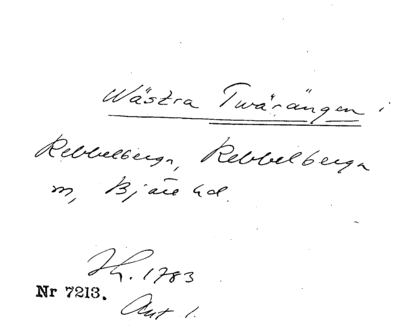 Wästra Twärängen i
Rebbelberga, Rebbelberga
m, Bjäre hd.
Jh. 1783
Nr 7213.
Akt 1.